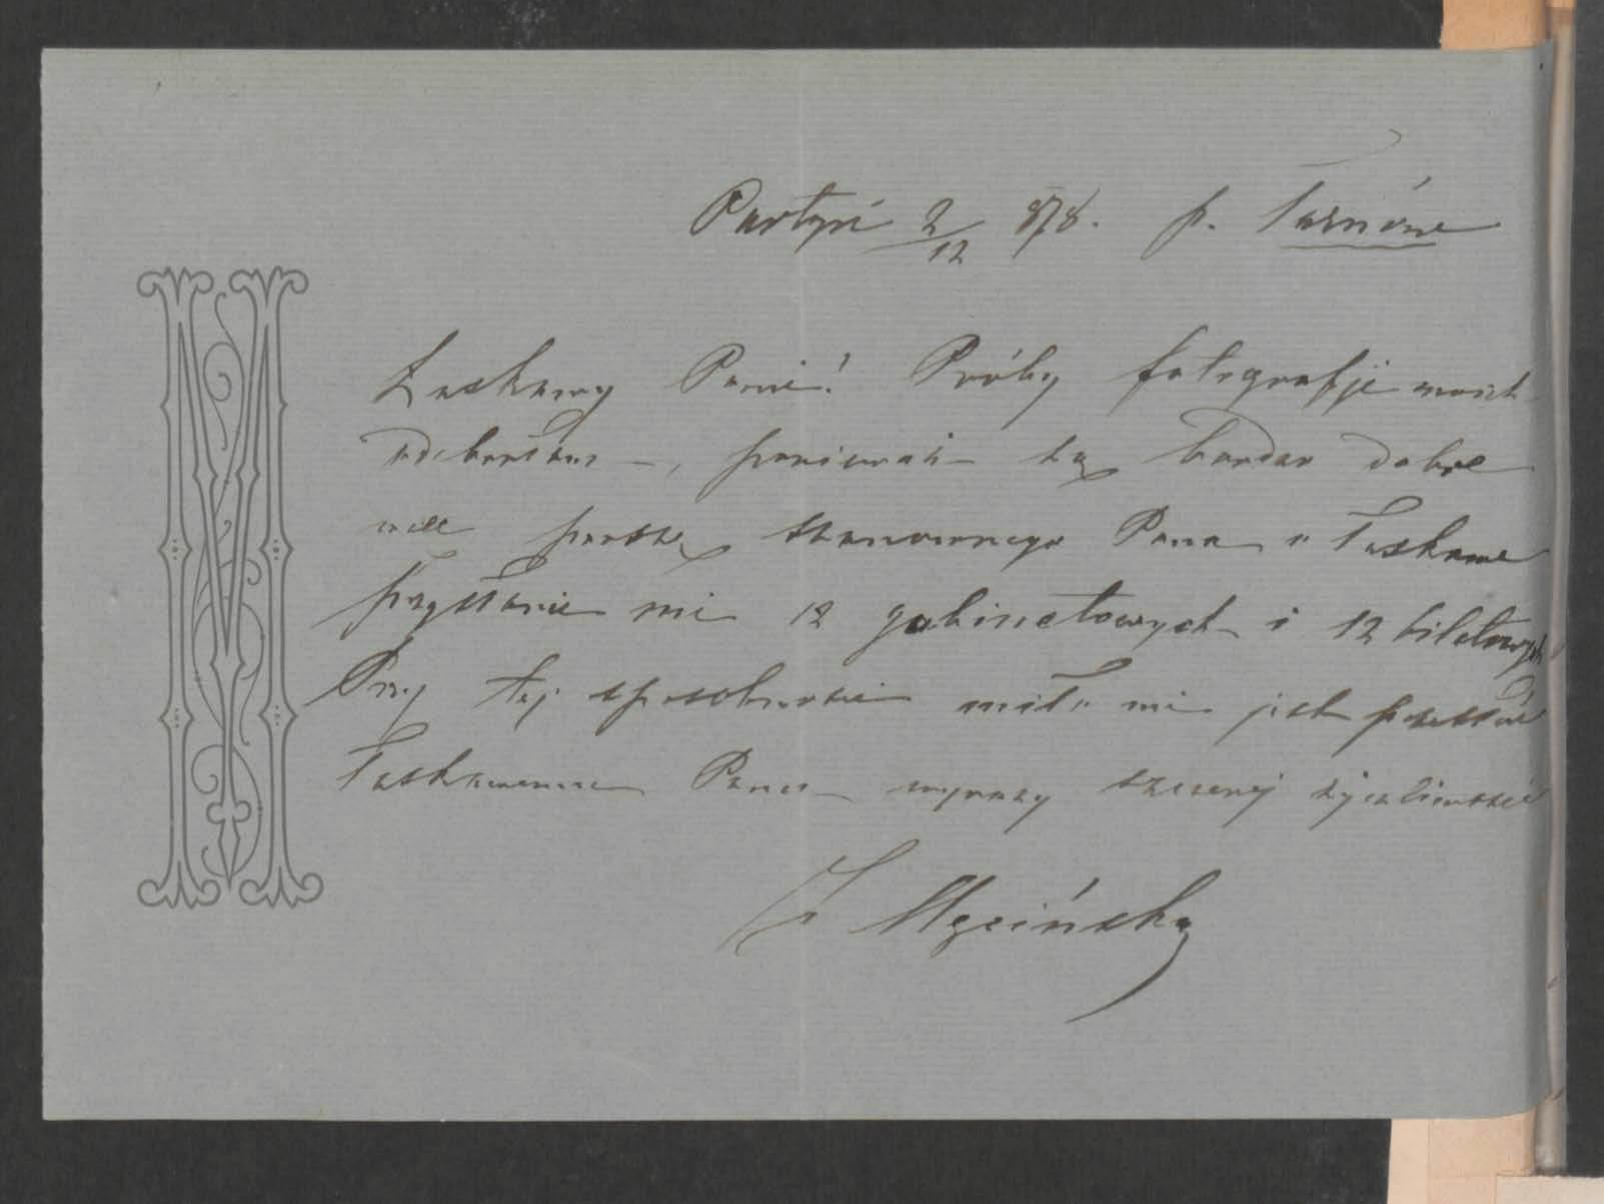 Partyń 2/12 878. p. Tarnów
Łaskawy Panie! Próby fotografji moich
odebrałam –, ponieważ są bardzo dobre
więc proszę szanownego Pana o łaskawe
przysłanie mi 12 gabinetowych i 12 biletowych
Przy tej sposobności miło mi jest przesłać
łaskawemu Panu wyrazy szczerej życzliwości
Męcińska